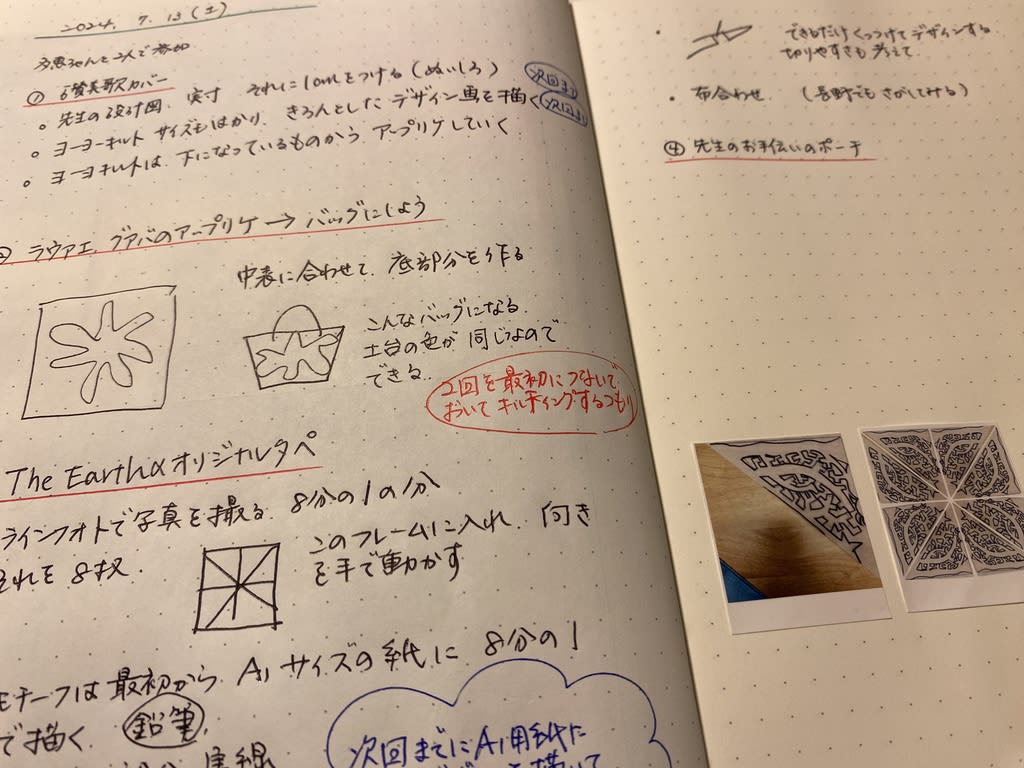 2024. 7. 13 (土)
ちゃんと2人で参加
① 讃美歌カバー
。先生の設計図、実寸 それに1cmをつける (ぬいしろ)
次回まで
。ヨーヨーキルト サイズもはかり、きちんとしたデザイン画を描く
次回まで
。ヨーヨーキルトは、下になっているものからアップリケしていく
② ラウアエ、グアバのアップリケ → バッグにしよう
中表に合わせて、底部分を作る
こんなバッグになる
土台の色が同じなので
できる。
2回を最初につないで
おいてキルティングするつもり
The Earthαオリジナルタペ
ラインフォトで写真を撮る。8分の1の分
それを8枚.
このフレームに入れ、向き
を手で動かす
モチーフは最初から、A1サイズの紙に 8分の1
で描く 鉛筆.
実線
次回までにA1用紙に
描いて
・できるだけくっつけてデザインする
切りやすさも考えて
・布合わせ. (長野でもさがしてみる)
④ 先生のお手伝いのポーチ